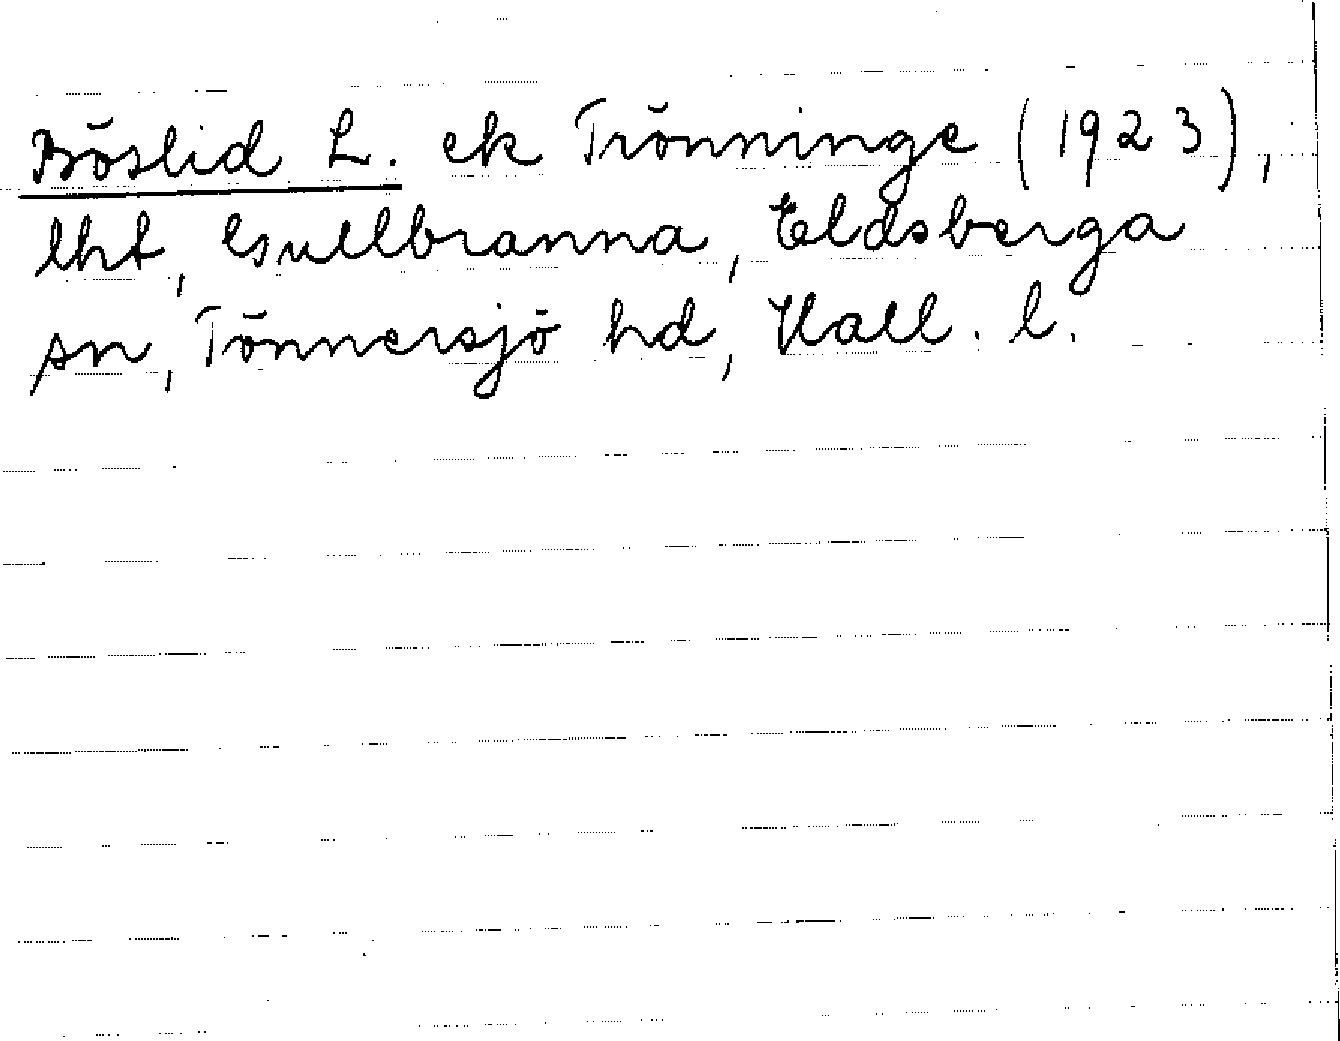 Böslid L. ek Trönninge (1923),
lht, Gullbranna, Eldsberga
sn, Tönnersjö hd, Hall. l.